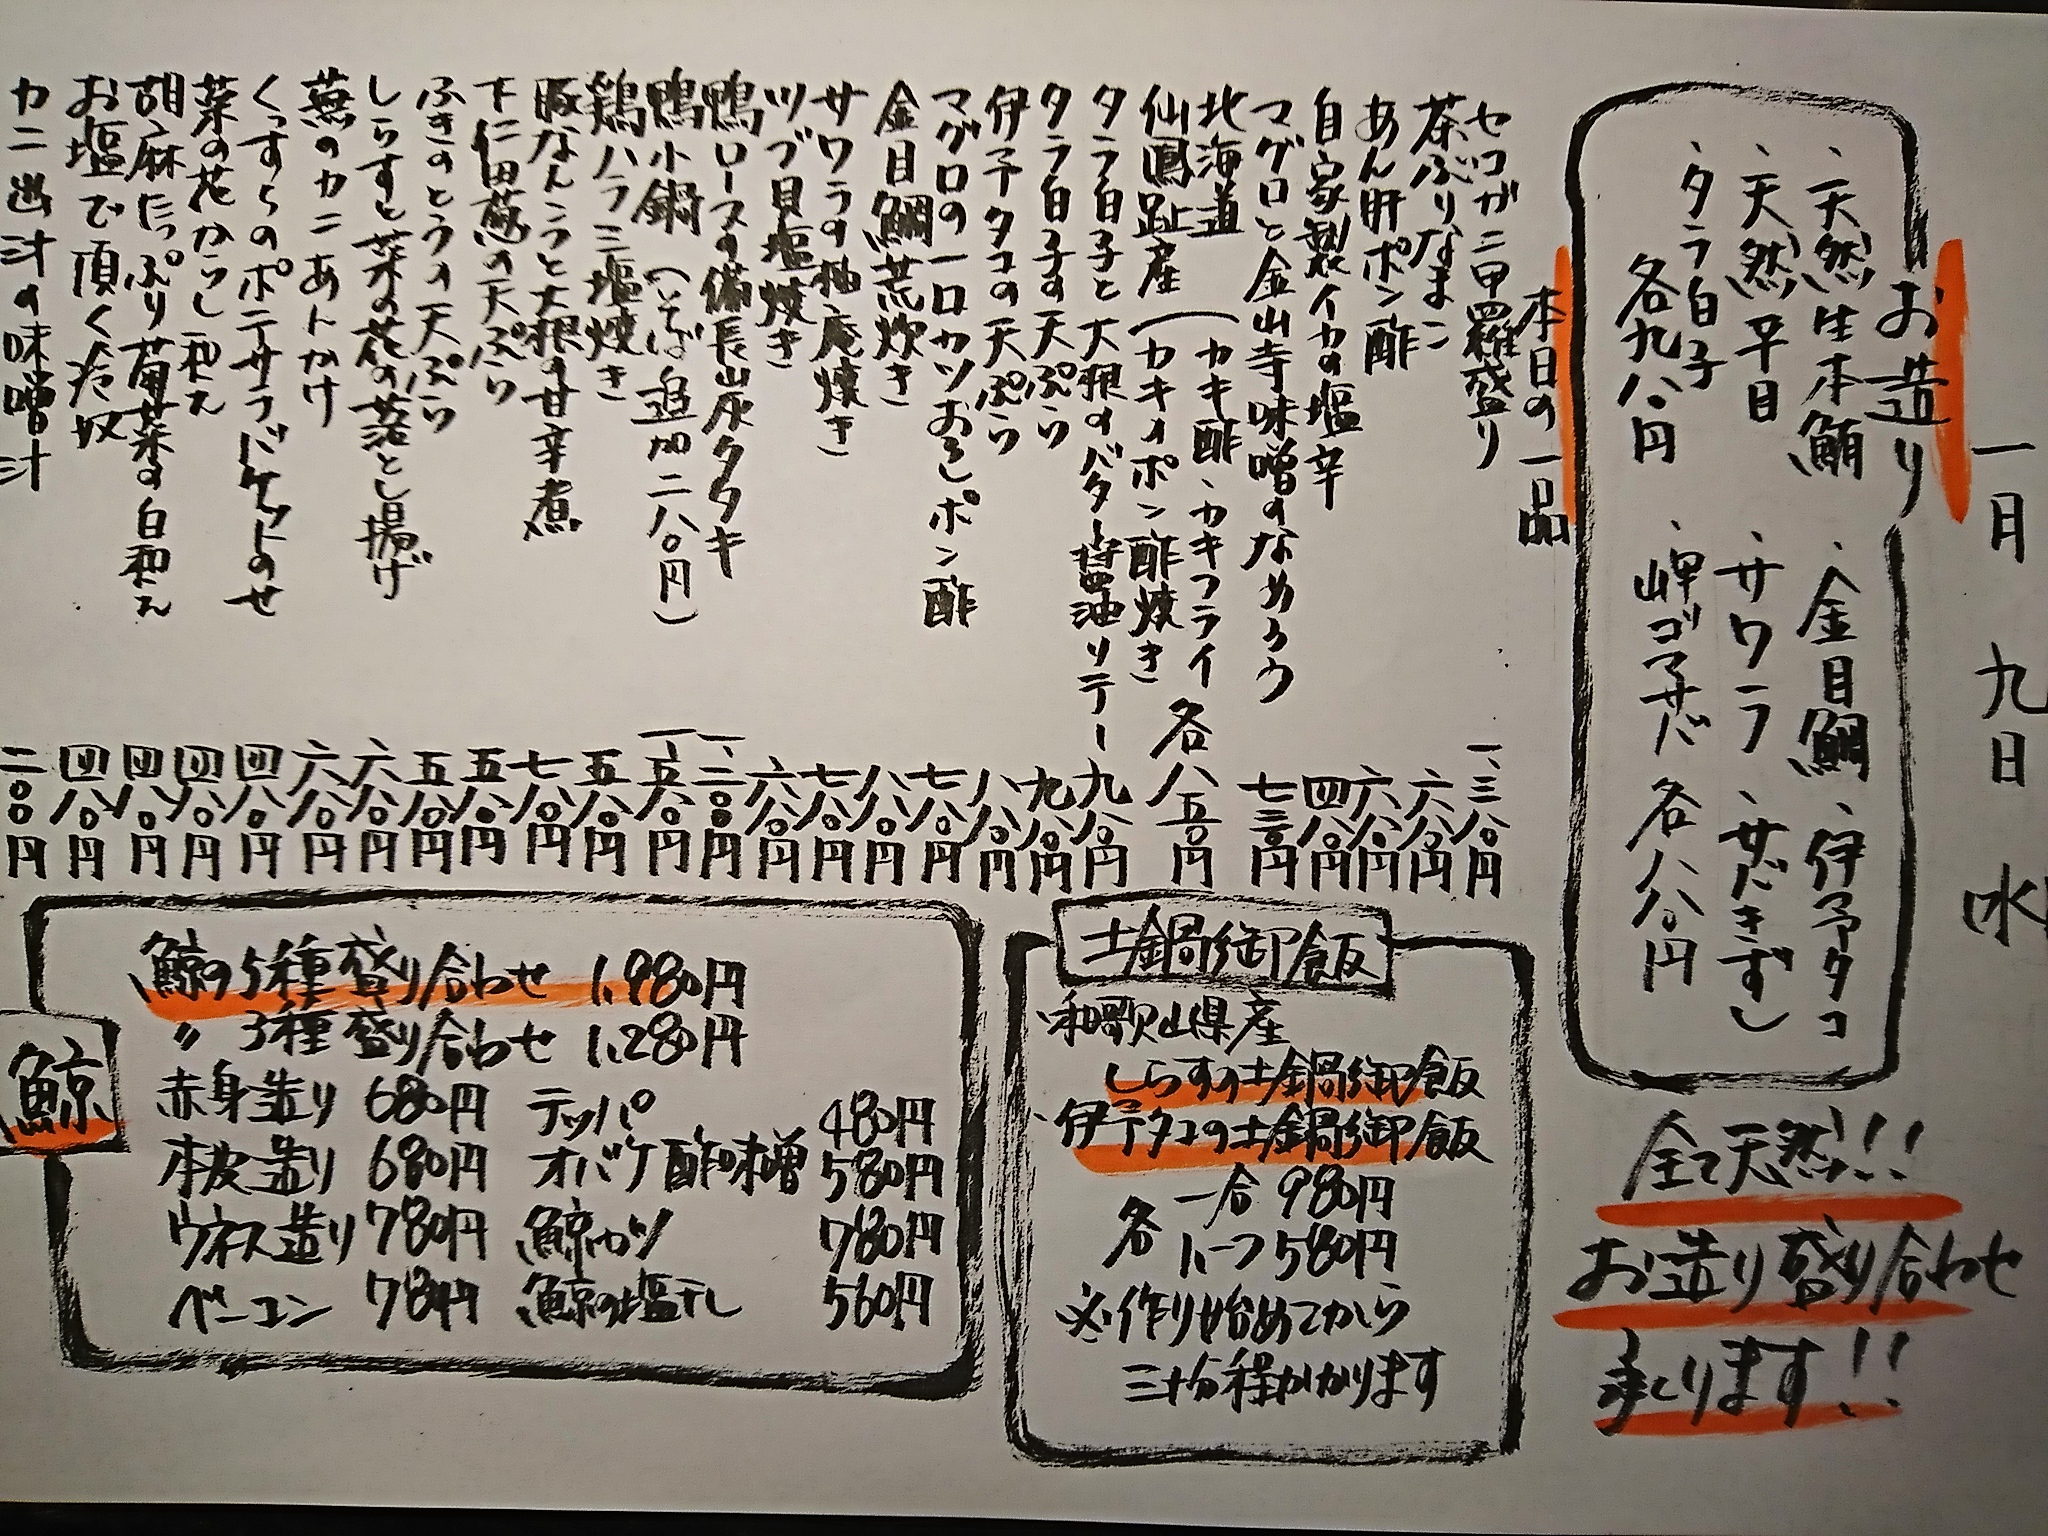 一月 九日 水
お造り
、天然生本鮪 、金目鯛 、伊予タコ
、天然平目 、サワラ 、サバきずし
、タラ白子 、岬ゴマサバ
各九八〇円 各八八〇円
全て天然!!
お造り盛り合わせ
承ります!!
本日の一品
セコガニ甲羅盛り 一、三八〇円
茶ぶりなまこ 六八〇円
あん肝ポン酢 六八〇円
自家製イカの塩辛 四八〇円
マグロと金山寺味噌のなめろう 七三〇円
北海道
仙鳳趾産
(カキ酢、カキフライ
(カキのポン酢焼き
各八五〇円
タラ白子と大根のバター醤油ソテー 九八〇円
タラ白子の天ぷら 九八〇円
伊予タコの天ぷら 八八〇円
マグロの一口カツおろしポン酢 七八〇円
金目鯛荒炊き 八八〇円
サワラの柚庵焼き 七八〇円
ツブ貝塩焼き 六八〇円
鴨ロースの備長炭タタキ 一、二〇〇円
鴨小鍋 (そば追加二八〇円) 一、五八〇円
鶏ハラミ塩焼き 五八〇円
豚なんこつと大根の甘辛煮 七八〇円
下仁田葱の天ぷら 五五〇円
ふきのとうの天ぷら 五八〇円
しらすと菜の花の落とし揚げ 六八〇円
蕪のカニあんかけ 六八〇円
くっすらのポテサラバケットのせ 四八〇円
菜の花からし和え 四八〇円
胡麻たっぷり菊菜の白和え 四八〇円
お塩で頂く冷奴 四八〇円
カニ出汁の味噌汁 二〇〇円
土鍋御飯
・和歌山県産
しらすの土鍋御飯
・伊予タコの土鍋御飯
各 一合 980円
ハーフ 580円
※作り始めてから
三十分程かかります
鯨
鯨の5種盛り合わせ 1,980円
〃 3種盛り合わせ 1,280円
赤身造り 680円 テッパ 480円
本皮造り 680円 オバケ酢味噌 580円
ウネス造り 780円 鯨カツ 780円
ベーコン 780円 鯨の塩干し 560円